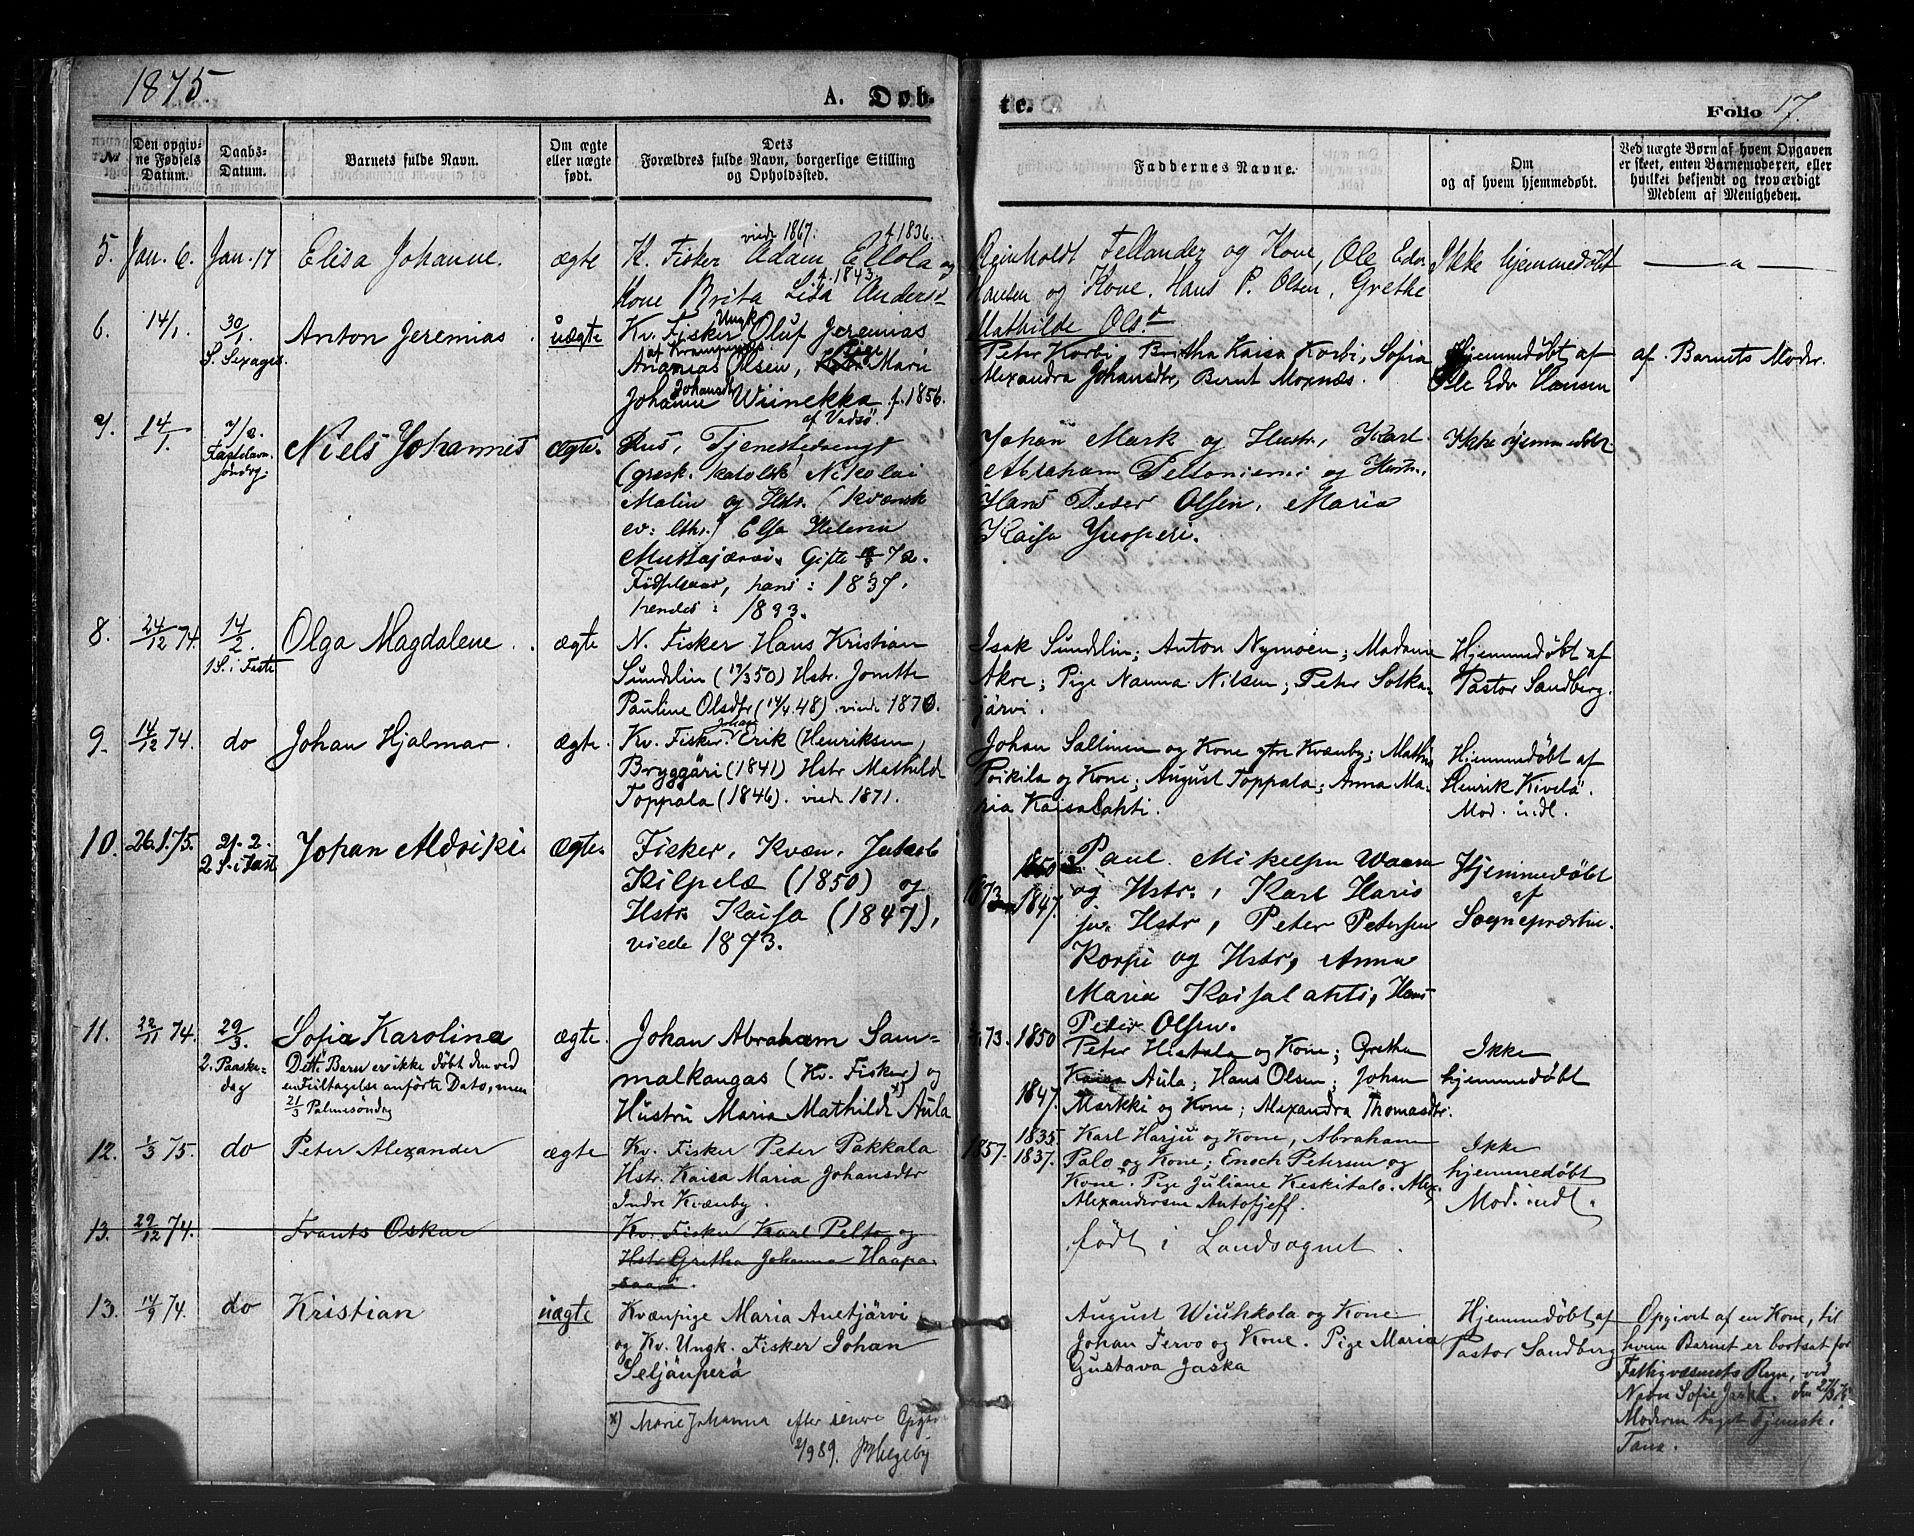 1875
A. Døb-
te.
Folio 17.
No
Den opgiv-
ne Fødsels
Datum.
Daabs-
Datum.
Barnets fulde Navn.
Om ægte
eller uægte
født.
Dets
Forældres fulde Navn, borgerlige Stilling
og Opholdssted.
Faddernes Navne.
Om
og af hvem hjemmedøbt.
Ved uægte Børn af hvem Opgaven
er skeet, enten Barnemoderen, eller
hvilket bekjendt og troværdigt
Medlem af Menigheden.
5. Jan. 6. Jan. 17 Elisa Johanne. ægte
viede 1867. f 1836.
K. Fisker Adam Ellola og
f. 1843.
Kone Brita Lisa Anders
Reinholdt Fellander og Kone, Ole Edv.
Hansen og Kone. Hans P. Olsen, Grethe
Mathilde Olsd
Ikke hjemmedøbt
6. 14/1. 30/1 S. Sexages. Anton Jeremias. uægte
Kv. Fisker Ungk. Oluf Jeremias
Ananias Olsen, Pige Marie
Johanne Johansdr Wiinekka f. 1856.
af Vadsö.
Peter Korbi, Britha Kaisa Korbi, Sofia
Alexandra Johansdtr, Bernt Moxnæs.
Hjemmedøbt af
Ole Edv Hansen
af Barnets Moder.
7. 14/1. 7/2. Niels Johannes ægte.
Rus, Tjenestedreng
(græsk. katolsk) Nikolai
Malin og Hstr. (kvænsk
ev: lth.) Elsa Helena
Mustajærvi. Gifte 72.
Födselsaar, hans: 1837,
hendes: 1893.
Johan Mark og Hustr., Karl
Abraham Peltoniemi og Hustr.,
Hans Peder Olsen, Maria
Kaisa Juoperi.
Ikke hjemmedöbt
8. 24/12 74. 14/2. 1 S. i Faste Olga Magdalene. ægte
N. Fisker Hans Kristian
Sundelin (17/3 50) Hstr. Jonette
Pauline Olsdtr (17/4 48). viede 1870.
Isak Sundelin; Anton Nymoen; Madame
Akre; Pige Nanna Nilsen; Peter Solka-
järvi.
Hjemmedøbt af
Pastor Sandberg.
9. 14/12 74. do Johan Hjalmar. ægte.
Kv. Fisker Johan Erik (Henriksen,
Bryggäri (1841) Hstr Mathilde
Toppala (1846). viede 1871.
Johan Sallinen og Kone ytre Kvænby; Mathis
Poikila og Kone; August Toppala; Anna Ma-
ria Kaisalahti.
Hjemmedøbt af
Henrik Kivelä.
Mod. indl.
10. 26.1.75. 21.2. 2 S. i Fast Johan Aldriki. Ægte.
Fisker, Kvæn, Jakob
Kilpelæ (1850) og
Hstr. Kaisa (1847),
viede 1873.
1873 1850 1847.
Paul Mikelsen Waara
og Hstr., Karl Haris
ju. Hstr, Peter Petersen
Korpi og Hstr, Anna
Maria Kaisalahti, Hans
Peter Olsen.
Hjemmedøbt
af
Sognepræsten.
11. 22/11 74. 29/3. 2. Paaske-
dag
Sofia Karolina
Dette Barn er ikke døbt den ved
en Feiltagelse anførte Dato, men
21/3 Palmesöndag
ægte.
Johan Abraham Sam-
malkangas (Kv. Fisker) og
Hustru Maria Mathilde x) Aula
73. 1850
1847.
Peter Hietala og Kone; Gretha
Kaisa Aula; Hans Olsen; Johan
Markki og Kone; Alexandra Thomasdtr.
Ikke
hjemmedøbt
12. 1/3 75. do Peter Alexander ægte
Kv. Fisker Peter Pakkala
Hstr. Kaisa Maria Johansdtr
Indre Kvænby.
1857. 1835. 1837.
Karl Harju og Kone, Abraham
Palo og Kone; Enoch Petersen og
Kone. Pige Juliane Keskitalo. Alex.
Alexandersen Autofjeff.
Ikke
hjemmedøbt
Mod. indl.
13. 29/12 74. Frants Oskar
Kv. Fisker Karl Pelto og
Hstr Gretha Johanna Haapa-
saari.
født i Landsognet.
13. 14/9 74. do Kristian uægte
Kvænpige Maria Auetjärvi
og Kv. Ungk. Fisker Johan
Seljänperä
August Wiuhkola og Kone
Johan Tervo og Kone. Pige Maria
Gustava Jaska
Hjemmedøbt af
Pastor Sandberg
Opgivet af en Kone, til
hvem Barnet er bortsat for
Fattigvæsenets Regn, ved
Navn Sofie Jaska. den 27/3 75
Moderen taget Tjeneste i
Tana.
x) Marie Johanna efter senere Opgave
2/9 89. Helgeby